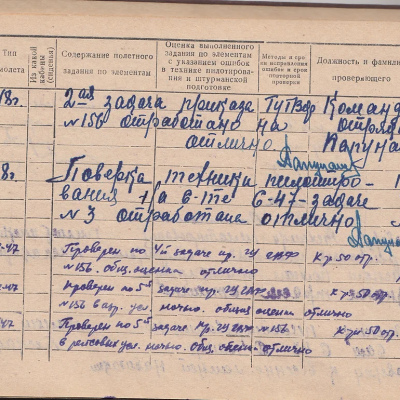 Тип
молета
Из какой
каб-ны
(сиденья)
Содержание полетного
задания по элементам
Оценка выполненного
задания по элементам
с указанием ошибок
в технике пилотирова-
ния и штурманской
подготовке
Методы и сро-
ки исправления
ошибок и срок
повторной
проверки
Должность и фамили
проверяющего
8г. 2ая задача приказа ГУГВФ Команд
№156 отработана на отря
отлично
8г. Поверка техники пилотиро-
вания на с-те С-47 задаче
№3 отработана отлично
-47 Проверен по 4й задаче пр. ГУ ГВФ К-р 50 отр.
№156. общ. оценка отлично
-47 Проверен по 5й задаче пр. ГУ ГВФ К-р 50 отр.
№156 в усл. ночью. общая оценка отлично
47 Проверен по 5й задаче пр. ГУ ГВФ №156 К-р 50 отр.
в рейсовых усл. ночью. Общ. оценка отлично